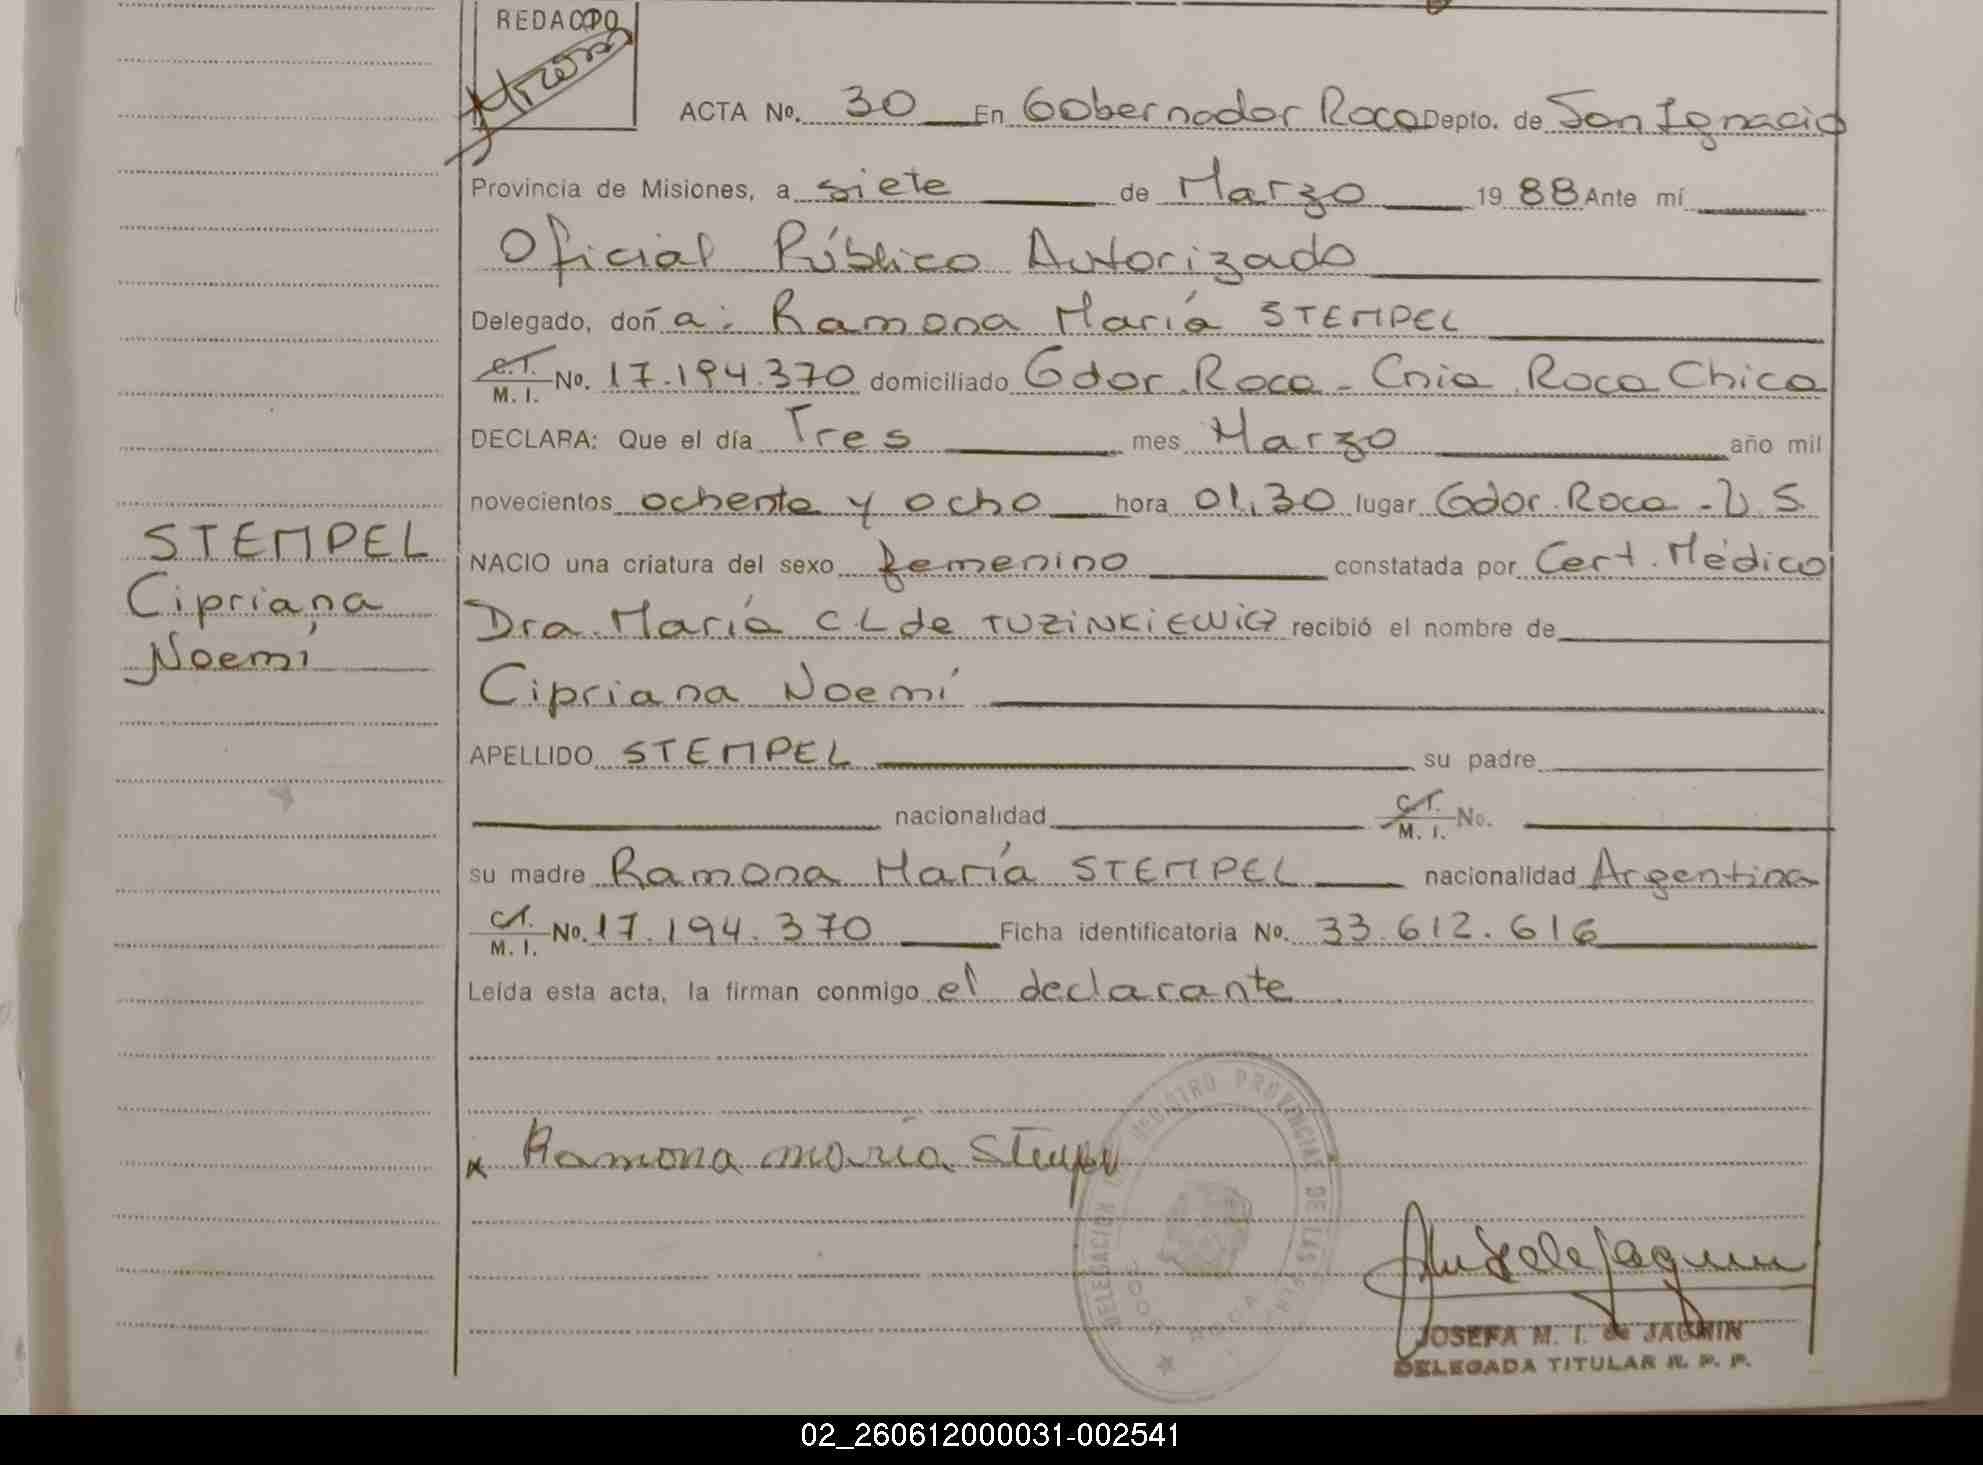 REDACTO
ACTA No. 30 En Gobernador Roca Depto. de San Ignacio
Provincia de Misiones, a siete de Marzo 1988 Ante mí
Oficial Público Autorizado
Delegado, doña: Ramona María STEMPEL
C.I. M. I. No. 17.194.370 domiciliado Gdor. Roca - Cnia Roca Chica
DECLARA: Que el día Tres mes Marzo año mil
novecientos ochenta y ocho hora 01,30 lugar Gdor. Roca - U.S.
STEMPEL
Cipriana
Noemí
NACIO una criatura del sexo femenino constatada por Cert. Médico
Dra. María C L de TUZiNKiEWiCZ recibió el nombre de
Cipriana Noemí
APELLIDO STEMPEL su padre
nacionalidad C.I. M. I. No.
su madre Ramona María STEMPEL nacionalidad Argentina
C.I. M. I. No. 17.194.370 Ficha identificatoria No. 33.612.616
Leída esta acta, la firman conmigo el declarante
x Ramona maria Stempel
DELEGACION REGISTRO PROVINCIAL DE LAS
GDOR ROCA
JOSEFA M. I. de JAQUIN
DELEGADA TITULAR R. P. P.
02_260612000031-002541